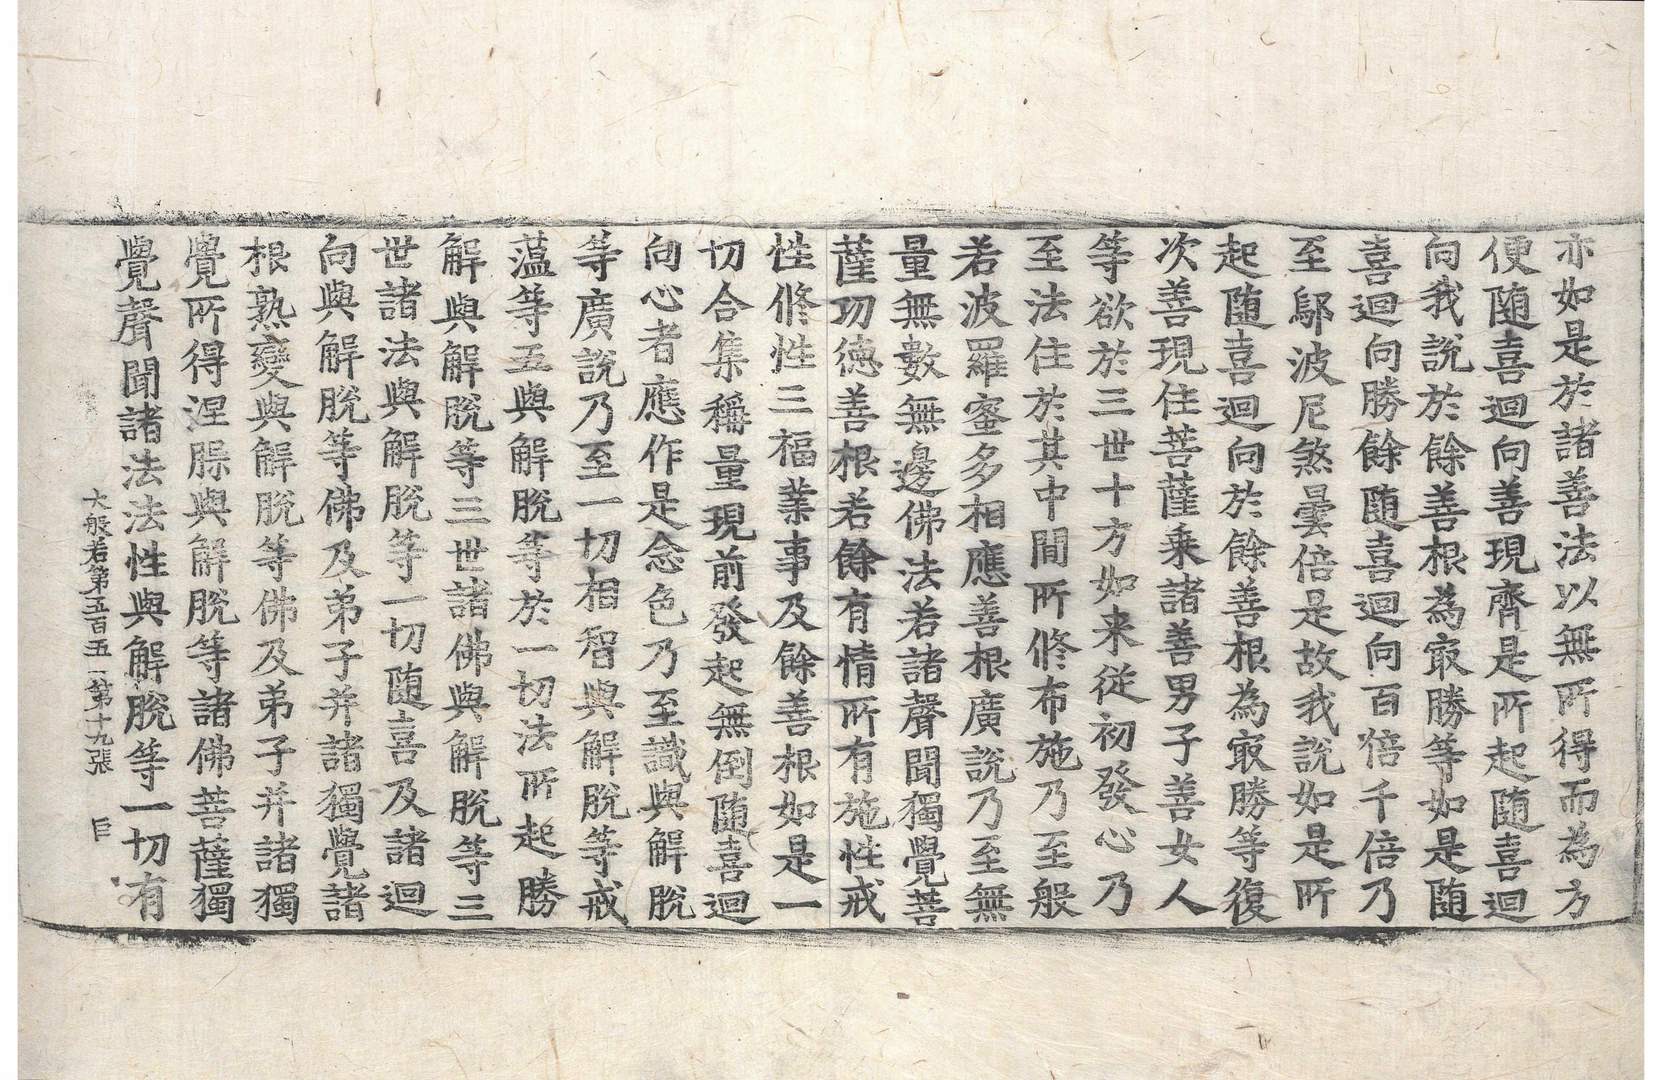 亦如是於諸善法以無所得而為方
便随喜迴向善現齊是所起随喜迴
向我說於餘善根為㝡勝等如是随
喜迴向勝餘随喜迴向百倍千倍乃
至鄔波尼煞曇倍是故我說如是所
起随喜迴向於餘善根為㝡勝等復
次善現住菩薩乘諸善男子善女人
等欲於三世十方如来從初發心乃
至法住於其中間所修布施乃至般
若波羅蜜多相應善根廣說乃至無
量無數無邊佛法若諸聲聞獨覺菩
薩㓛德善根若餘有情所有施性戒
性修性三福業事及餘善根如是一
切合集稱量現前發起無倒随喜迴
向心者應作是念色乃至識與解脫
等廣說乃至一切相智與解脫等戒
蕰等五與解脫等於一切法所起勝
解與解脫等三世諸佛與解脫等三
世諸法與解脫等一切随喜及諸迴
向與解脫等佛及弟子并諸獨覺諸
根熟變與解脫等佛及弟子并諸獨
覺所得涅槃與解脫等諸佛菩薩獨
覺聲聞諸法法性與解脫等一切有
大般若第五百五 第十九張 巨